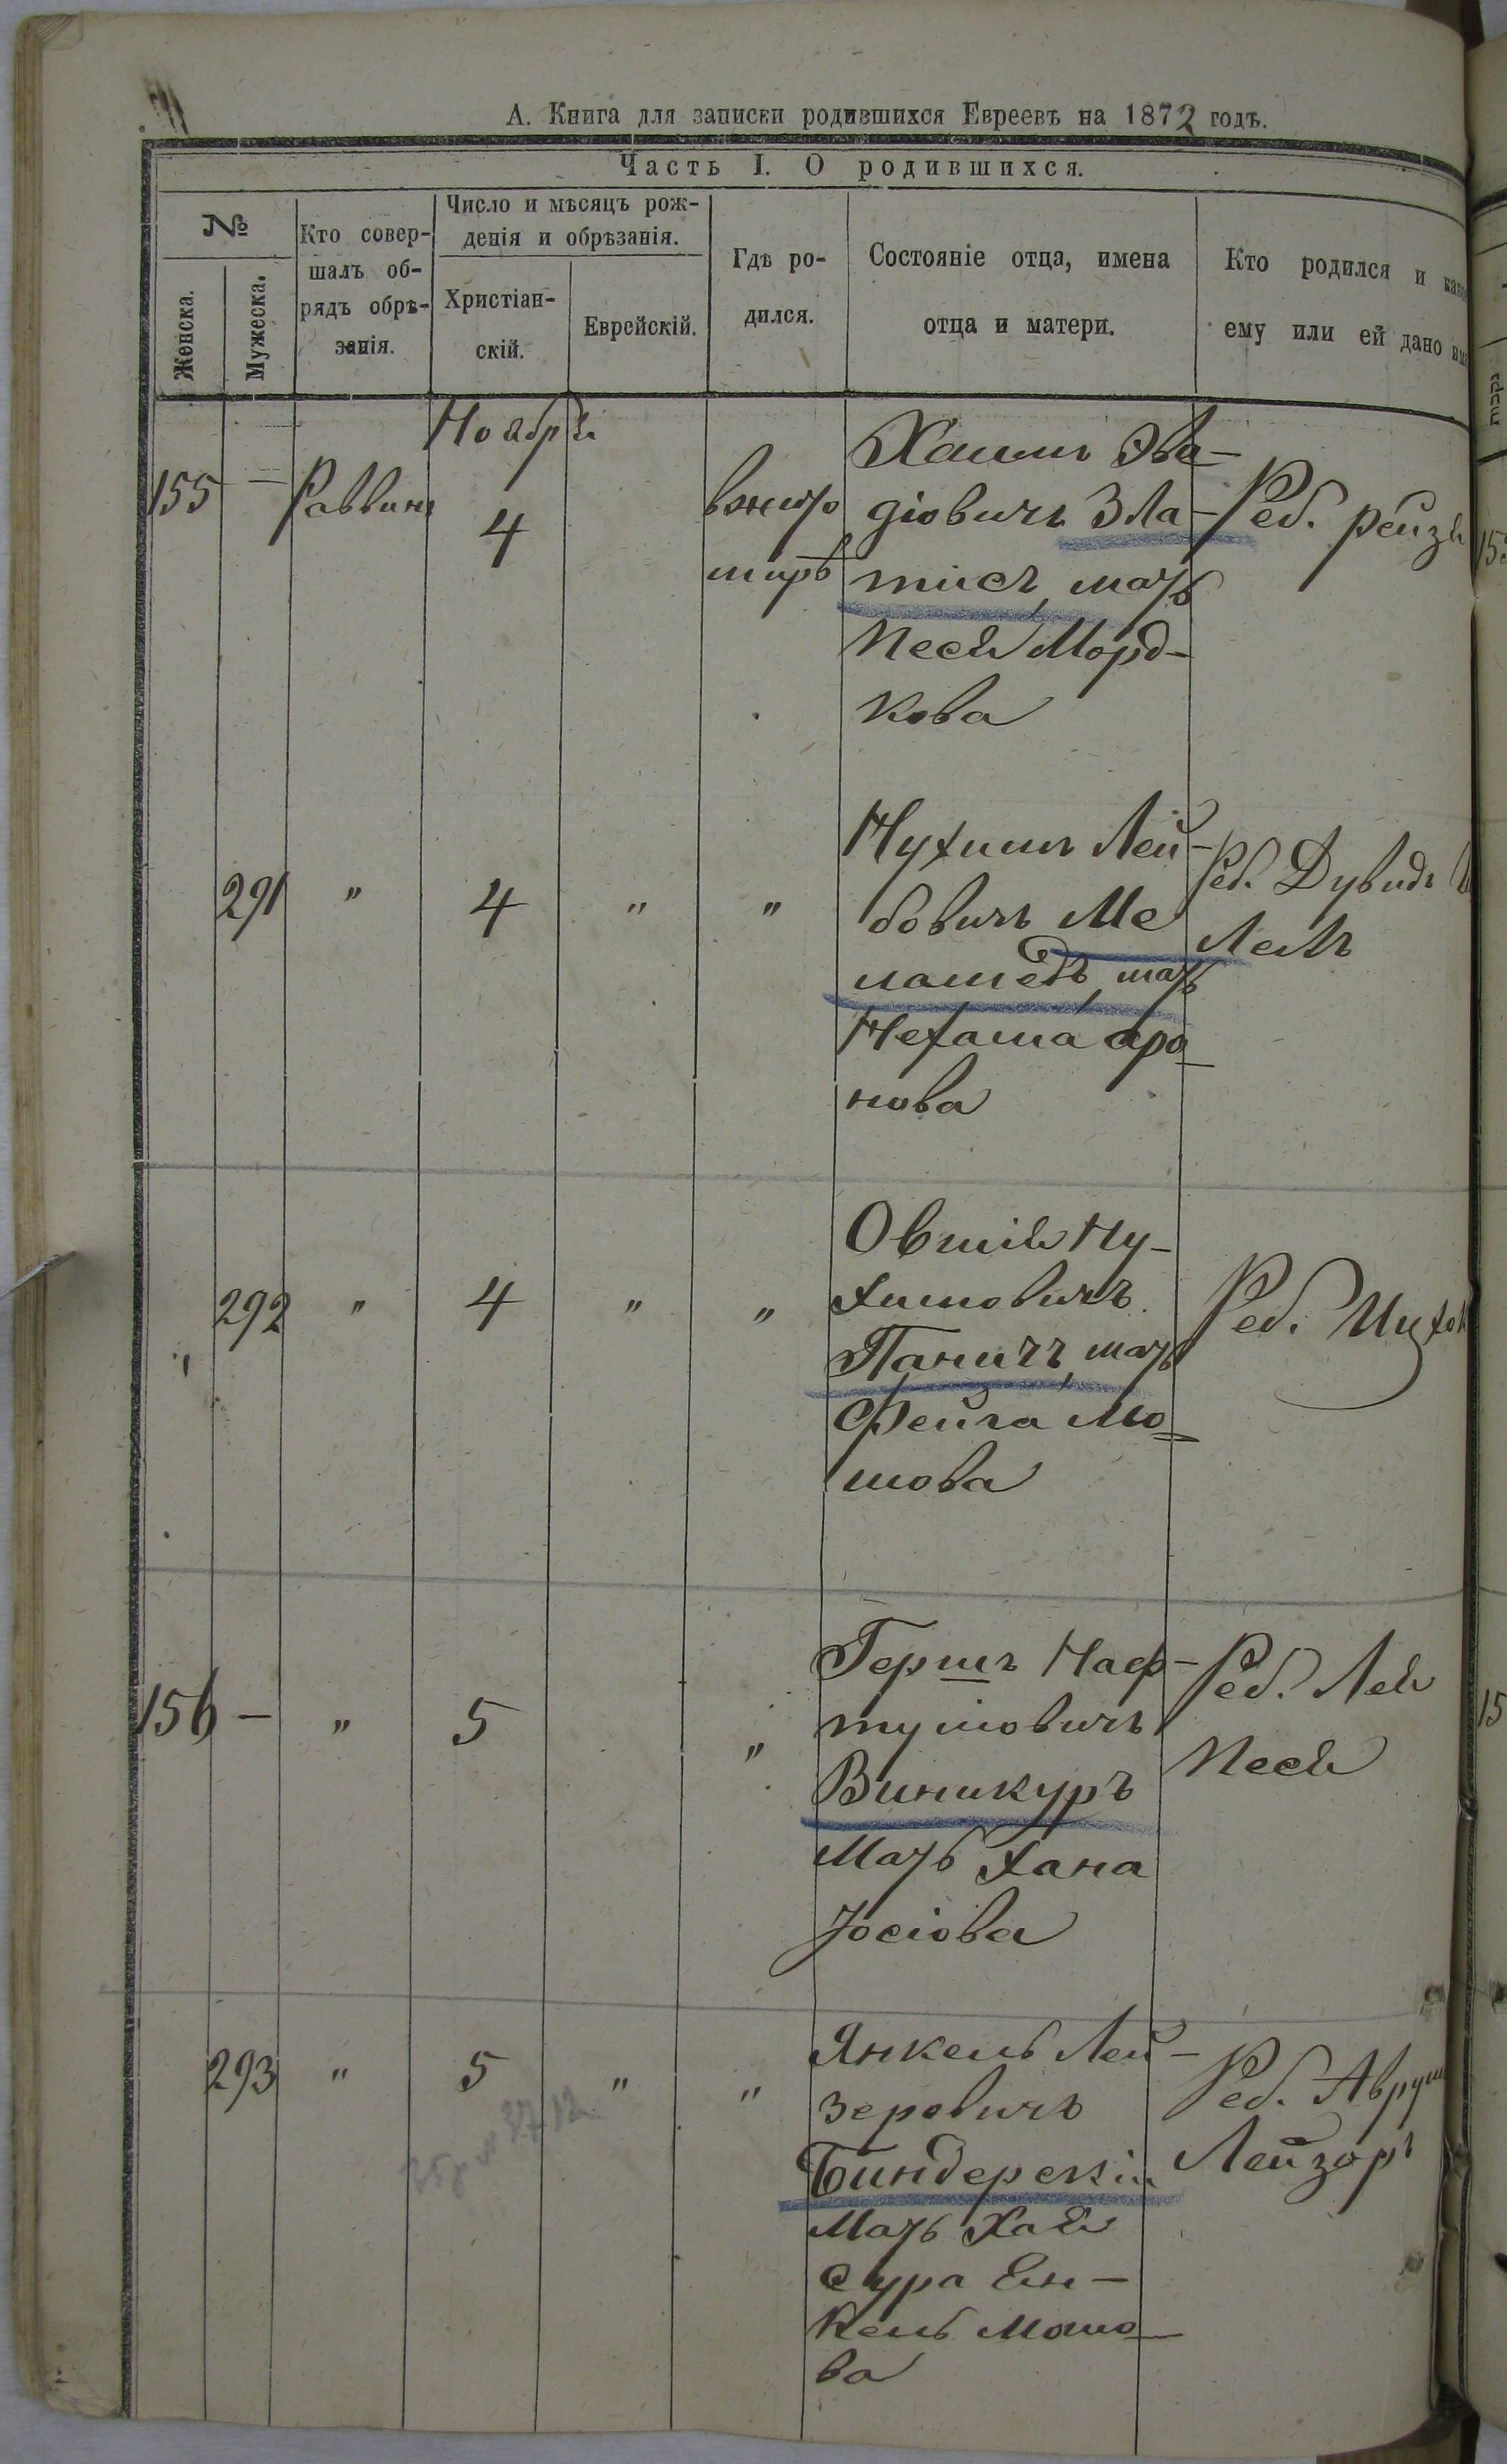 А. Книга для записки родившихся Евреевъ на 1872 годъ.
Часть I. О родившихся.
№
Женска.
Мужеска.
Кто совер-
шалъ об-
рядъ обрѣ-
занія.
Число и мѣсяцъ рож-
денія и обрѣзанія.
Христіан-
скій.
Еврейскій.
Гдѣ ро-
дился.
Состояніе отца, имена
отца и матери.
Кто родился и
ему или ей дано
Ноября
155 — Раввинъ 4
вжито
мирѣ
Хаимъ Ова-
діовичъ Зла-
тисъ, мать
Песя Морд-
кова
Реб. Рейзя
291 " 4 " "
Нухимъ Лей-
бовичъ Ме
ламедъ, мать
Нехама Аро-
нова
Реб. Дувидъ
292 " 4 " "
Овшія Ну-
химовичъ
Паничъ, мать
Фейга Мо-
шова
Реб.
156 — " 5 "
Гершъ Наф-
туловичъ
Виникуръ
Мать Хана
Іосіова
Реб. Лея
Песя
293 " 5 " "
Янкель Лей-
зеровичъ
Биндерскій
Мать Хая
Сура Ен-
кель Мошо-
ва
Реб. Аврум
Лейзоръ